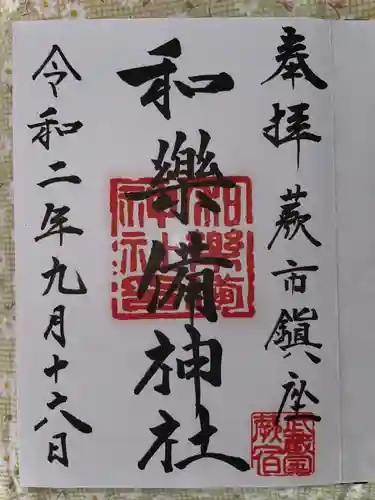 奉拝 蕨市鎮座
和樂備神社
令和二年九月十六日
和樂備神社
武蔵国蕨宿